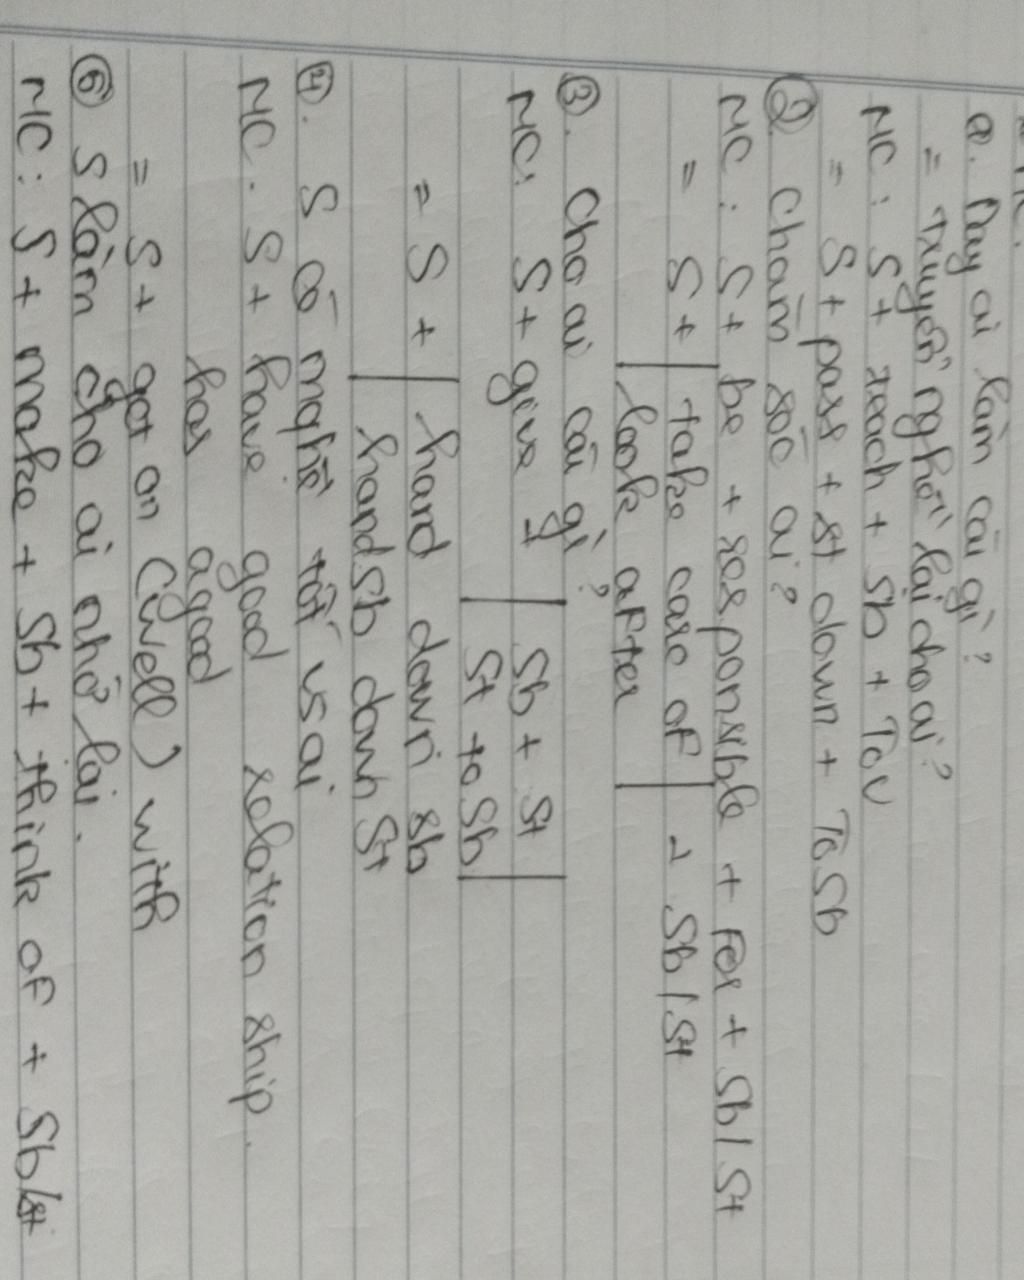 a. Dạy ai làm cái gì?
= truyền nghề lại cho ai?
MC: S + teach + Sb + To V
= S + pass + st down + To Sb
② Chăm sóc ai?
MC: S + be + responsible + For + Sb / St
= S + take care of + Sb / St
look after
③. Cho ai cái gì?
MC: S + give + Sb + St
St to Sb
= S + hand down sb
hand Sb down St
④. S có mqhệ tốt vs ai
MC. S + have good relation ship.
has a good
= S + get on (well) with
⑤ S làm cho ai nhớ lại.
MC: S + make + Sb + think of + Sb/st